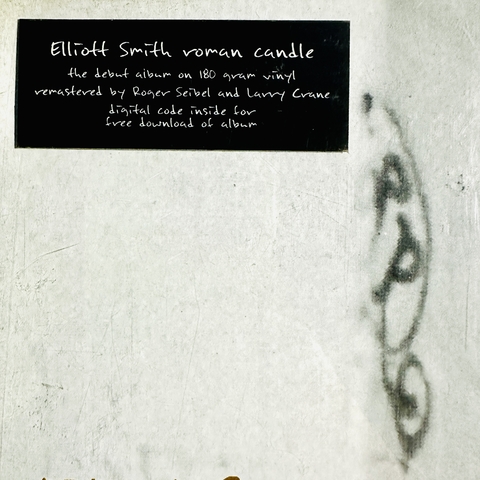 Elliott Smith roman candle
the debut album on 180 gram vinyl
remastered by Roger Seibel and Larry Crane
digital code inside for
free download of album